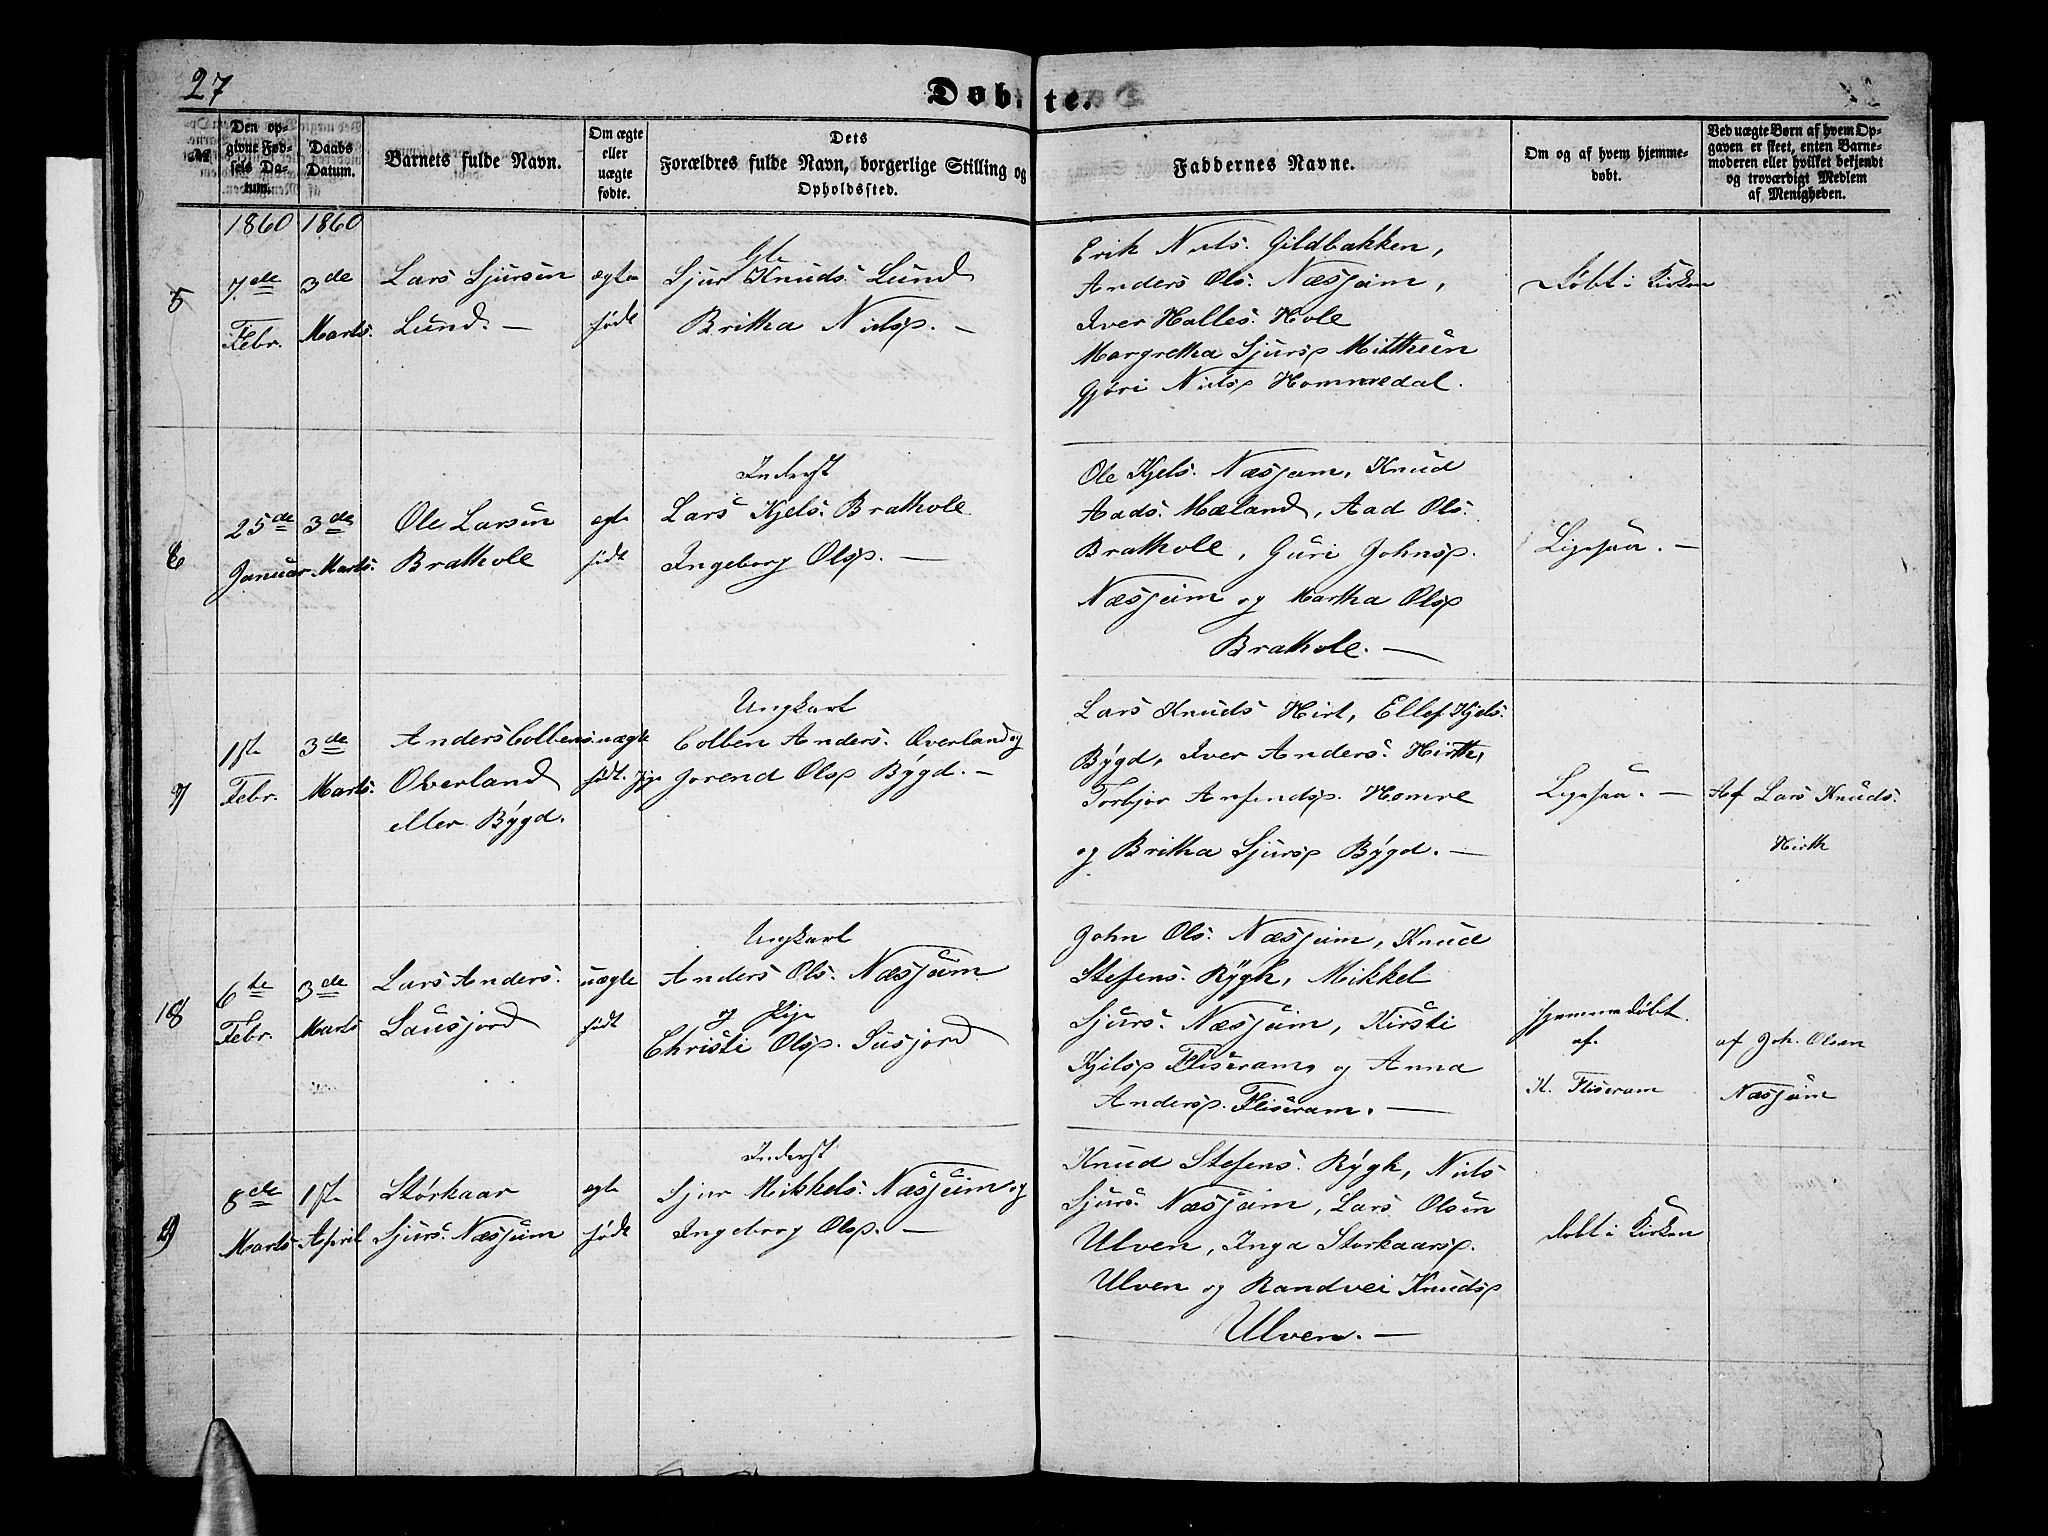 27
Døbte.
№
Den op-
givne Fød-
sels Da-
tum.
Daabs
Datum.
Barnets fulde Navn.
Om ægte
eller
uægte
fødte.
Dets
Forældres fulde Navn, borgerlige Stilling og
Opholdssted.
Faddernes Navne.
Om og af hvem hjemme-
døbt.
Ved uægte Børn af hvem Op-
gaven er skeet, enten Barne-
moderen eller hvilket bekjendt
og troværdigt Medlem
af Menigheden.
1860 1860
5
7de
Febr.
3de
Marts.
Lars Sjursen
Lund. —
ægte
født
Sjur Knuds. Lund
Britha Nielsp. —
Erik Niels. Gildbakken,
Anders Ols. Næsjeim,
Iver Halles. Hole
Margretha Sjursp Mitthun
Gjøri Nielsp Hommedal.
Døbt i Kirken
6
25de
Januar
3de
Marts.
Ole Larsen
Brathole
ægte
født
Inderst
Lars Kjels. Brathole
Ingeborg Olsp. —
Ole Kjels. Næsjeim, Knud
Aads. Mæland, Aad Ols.
Brathole, Guri Johnsp.
Næsjeim og Martha Olsp
Brathole. —
Ligesaa. —
7
1ste
Febr.
3de
Marts.
Anders Colbens.
Overland
eller Bygd.
uægte
født.
Ungkarl
Colben Anders. Overland og
Pige Jorend Olsp Bygd. —
Lars Knuds Hirt, Ellef Kjels.
Bygd, Iver Anders. Hirth,
Torbjor Amundsp. Homre
og Britha Sjursp Bygd. —
Ligesaa. —
Af Lars Knuds.
Hirth
18
6te
Febr.
3de
Marts
Lars Anders.
Sausjord
uægte
født
Ungkarl
Anders Ols. Næsjeim
og Pige
Christi Olsp. Susjord
John Ols. Næsjeim, Knud
Stefens. Rygh, Mikkel
Sjurs. Næsjeim, Kirsti
Kjelsp Fliseram, og Anna
Andersp. Fliseram. —
Hjemmedøbt
af.
K. Fliseram
af Joh. Olsen
Næsjeim
9
8de
Marts
1ste
April
Storkaar
Sjurs. Næsjeim
ægte
født
Inderst
Sjur Mikkels. Næsjeim og
Ingeborg Olsp. —
Knud Stefens. Rygh, Niels
Sjurs. Næsjeim, Lars Olsen
Ulven, Inga Storkaarsp.
Ulven og Randvei Knudsp
Ulven. —
Døbt i Kirken